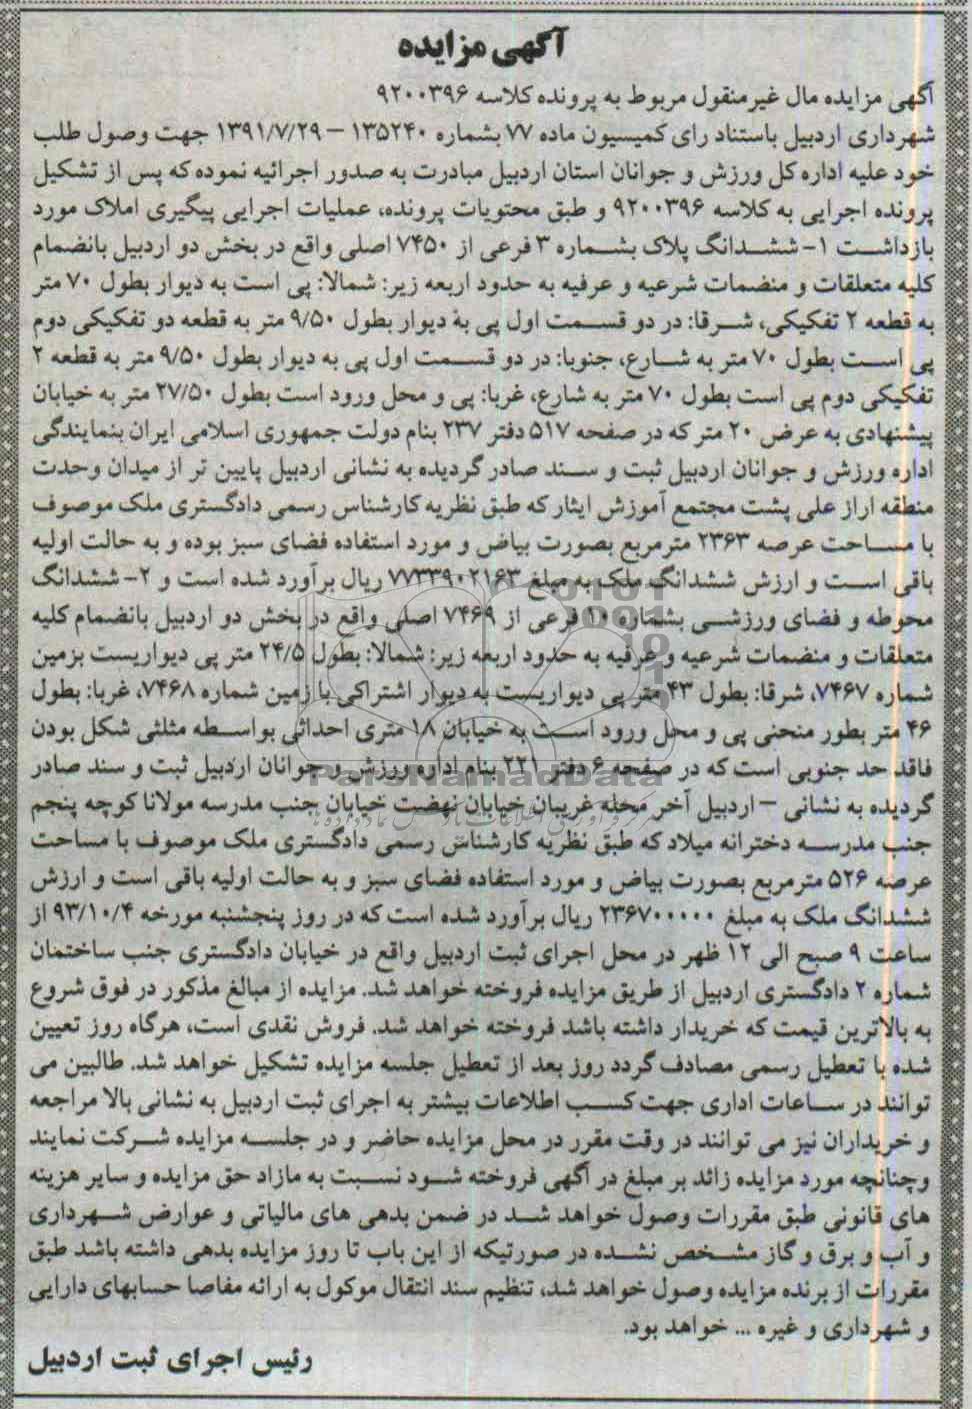 آگهی مزایده
آگهی مزایده مال غیرمنقول مربوط به پرونده کلاسه ۹۲۰۰۳۹۶
شهرداری اردبیل باستناد رای کمیسیون ماده ۷۷ بشماره ۱۳۵۲۴۰ – ۱۳۹۱/۷/۲۹ جهت وصول طلب
خود علیه اداره کل ورزش و جوانان استان اردبیل مبادرت به صدور اجرائیه نموده که پس از تشکیل
پرونده اجرایی به کلاسه ۹۲۰۰۳۹۶ و طبق محتویات پرونده، عملیات اجرایی پیگیری املاک مورد
بازداشت ۱- ششدانگ پلاک بشماره ۳ فرعی از ۷۴۵۰ اصلی واقع در بخش دو اردبیل بانضمام
کلیه متعلقات و منضمات شرعیه و عرفیه به حدود اربعه زیر: شمالا: پی است به دیوار بطول ۷۰ متر
به قطعه ۲ تفکیکی، شرقا: در دو قسمت اول پی به دیوار بطول ۹/۵۰ متر به قطعه دو تفکیکی دوم
پی است بطول ۷۰ متر به شارع، جنوبا: در دو قسمت اول پی به دیوار بطول ۹/۵۰ متر به قطعه ۲
تفکیکی دوم پی است بطول ۷۰ متر به شارع، غربا: پی و محل ورود است بطول ۲۷/۵۰ متر به خیابان
پیشنهادی به عرض ۲۰ متر که در صفحه ۵۱۷ دفتر ۲۳۷ بنام دولت جمهوری اسلامی ایران بنمایندگی
اداره ورزش و جوانان اردبیل ثبت و سند صادر گردیده به نشانی اردبیل پایین تر از میدان وحدت
منطقه اراز علی پشت مجتمع آموزش ایثار که طبق نظریه کارشناس رسمی دادگستری ملک موصوف
با مساحت عرصه ۲۳۶۳ مترمربع بصورت بیاض و مورد استفاده فضای سبز بوده و به حالت اولیه
باقی است و ارزش ششدانگ ملک به مبلغ ۷۷۳۳۹۰۲۱۶۳ ریال برآورد شده است و ۲- ششدانگ
محوطه و فضای ورزشی بشماره ۱۰ فرعی از ۷۴۶۹ اصلی واقع در بخش دو اردبیل بانضمام کلیه
متعلقات و منضمات شرعیه و عرفیه به حدود اربعه زیر: شمالا: بطول ۲۴/۵ متر پی دیواریست بزمین
شماره ۷۴۶۷، شرقا: بطول ۴۳ متر پی دیواریست به دیوار اشتراکی با زمین شماره ۷۴۶۸، غربا: بطول
۴۶ متر بطور منحنی پی و محل ورود است به خیابان ۱۸ متری احداثی بواسطه مثلثی شکل بودن
فاقد حد جنوبی است که در صفحه ۶ دفتر ۲۲۱ بنام اداره ورزش و جوانان اردبیل ثبت و سند صادر
گردیده به نشانی – اردبیل آخر محله غریبان خیابان نهضت خیابان جنب مدرسه مولانا کوچه پنجم
جنب مدرسه دخترانه میلاد که طبق نظریه کارشناس رسمی دادگستری ملک موصوف با مساحت
عرصه ۵۲۶ مترمربع بصورت بیاض و مورد استفاده فضای سبز و به حالت اولیه باقی است و ارزش
ششدانگ ملک به مبلغ ۲۳۶۷۰۰۰۰۰ ریال برآورد شده است که در روز پنجشنبه مورخه ۹۳/۱۰/۴ از
ساعت ۹ صبح الی ۱۲ ظهر در محل اجرای ثبت اردبیل واقع در خیابان دادگستری جنب ساختمان
شماره ۲ دادگستری اردبیل از طریق مزایده فروخته خواهد شد. مزایده از مبالغ مذکور در فوق شروع
به بالاترین قیمت که خریدار داشته باشد فروخته خواهد شد. فروش نقدی است، هرگاه روز تعیین
شده با تعطیل رسمی مصادف گردد روز بعد از تعطیل جلسه مزایده تشکیل خواهد شد. طالبین می
توانند در ساعات اداری جهت کسب اطلاعات بیشتر به اجرای ثبت اردبیل به نشانی بالا مراجعه
و خریداران نیز می توانند در وقت مقرر در محل مزایده حاضر و در جلسه مزایده شرکت نمایند
وچنانچه مورد مزایده زائد بر مبلغ در آگهی فروخته شود نسبت به مازاد حق مزایده و سایر هزینه
های قانونی طبق مقررات وصول خواهد شد در ضمن بدهی های مالیاتی و عوارض شهرداری
و آب و برق و گاز مشخص نشده در صورتیکه از این باب تا روز مزایده بدهی داشته باشد طبق
مقررات از برنده مزایده وصول خواهد شد، تنظیم سند انتقال موکول به ارائه مفاصا حسابهای دارایی
و شهرداری و غیره ... خواهد بود.
رئیس اجرای ثبت اردبیل
ParsNamadData